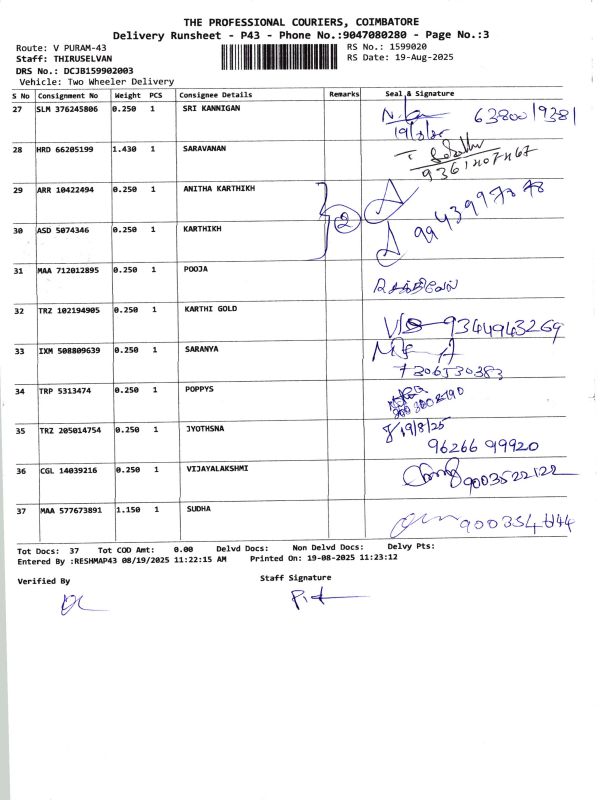 THE PROFESSIONAL COURIERS, COIMBATORE
Delivery Runsheet - P43 - Phone No.:9047080280 - Page No.:3
Route: V PURAM-43 RS No.: 1599020
Staff: THIRUSELVAN RS Date: 19-Aug-2025
DRS No.: DCJB159902003
Vehicle: Two Wheeler Delivery
S No Consignment No Weight PCS Consignee Details Remarks Seal & Signature
27 SLM 376245806 0.250 1 SRI KANNIGAN 6380019381
19/8/25
28 HRD 66205199 1.430 1 SARAVANAN
9361207467
29 ARR 10422494 0.250 1 ANITHA KARTHIKH
2
30 ASD 5074346 0.250 1 KARTHIKH
31 MAA 712012895 0.250 1 POOJA
32 TRZ 102194905 0.250 1 KARTHI GOLD
9344943269
33 IXM 508809639 0.250 1 SARANYA
7306530383
34 TRP 5313474 0.250 1 POPPYS
35 TRZ 205014754 0.250 1 JYOTHSNA 19/8/25
96266 99920
36 CGL 14039216 0.250 1 VIJAYALAKSHMI
9003522122
37 MAA 577673891 1.150 1 SUDHA
Tot Docs: 37 Tot COD Amt: 0.00 Delvd Docs: Non Delvd Docs: Delvy Pts:
Entered By :RESHMAP43 08/19/2025 11:22:15 AM Printed On: 19-08-2025 11:23:12
Verified By Staff Signature